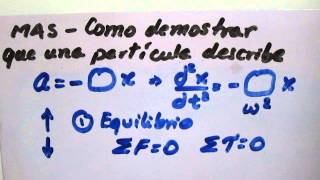 MAS - Como demostrar
que una partícula describe
a = - □ x → d²x/dt² = - □ x
ω²
① Equilibrio
ΣF=0 Στ=0